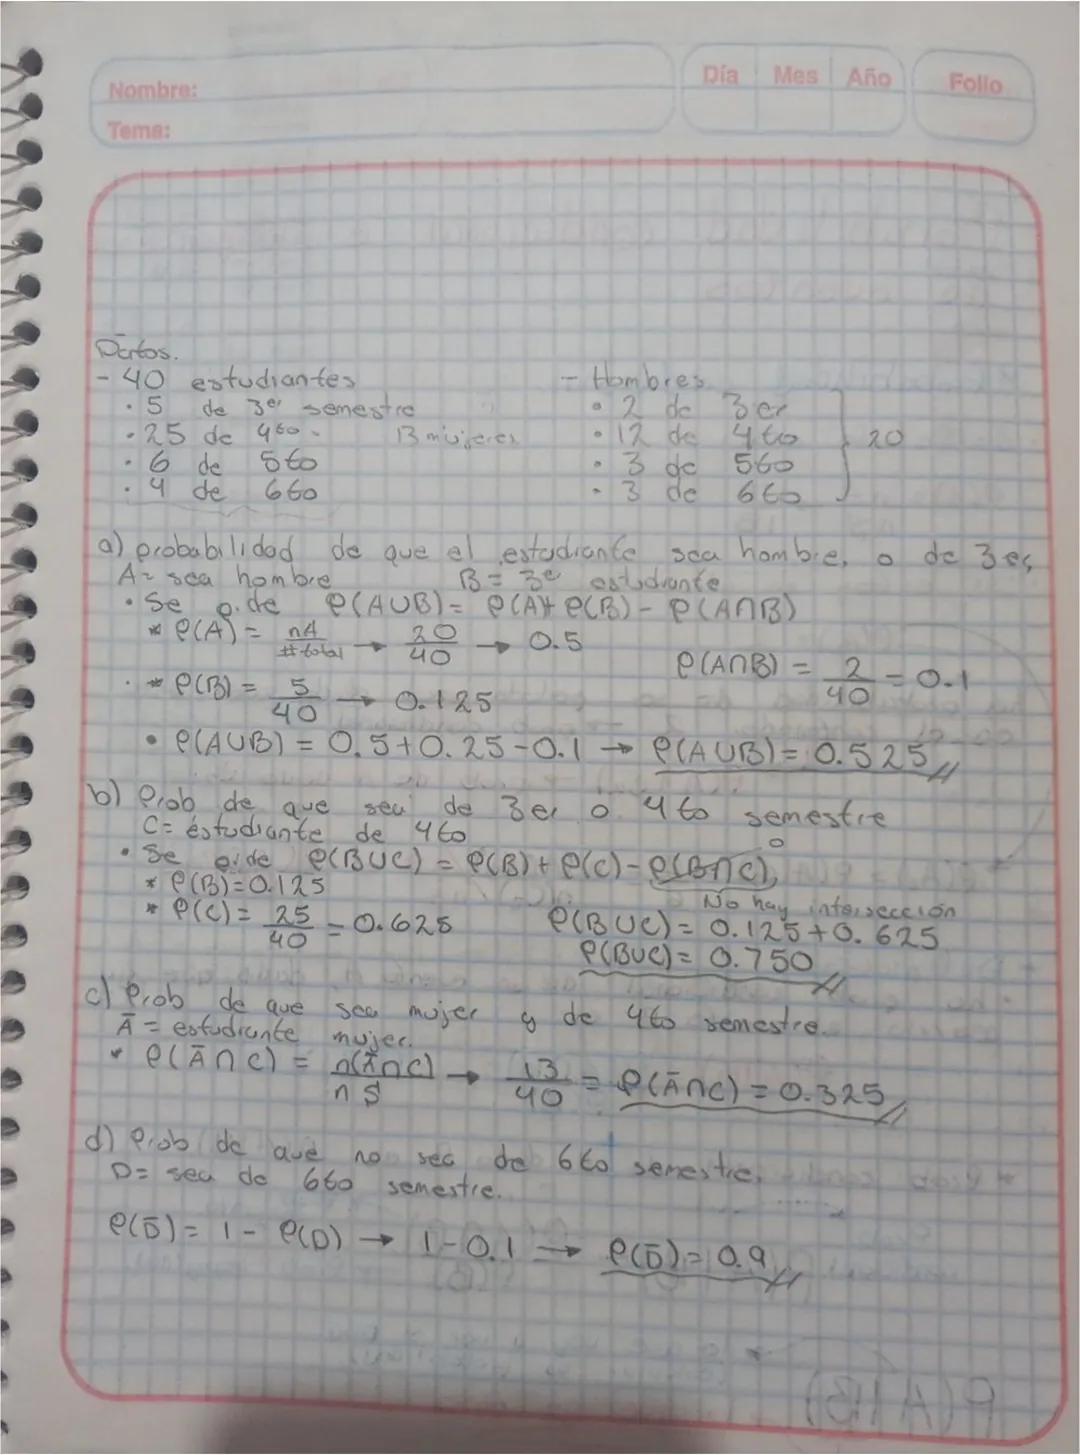 Nombre:
Tema:
Día Mes Año Folio
Datos.
- 40 estudiantes
• 5 de 3er semestre
• 25 de 4to. 13 mujeres
• 6 de 5to
• 4 de 6to
- Hombres
• 2 de 3er
• 12 de 4to
• 3 de 5to
• 3 de 6to
20
a) probabilidad de que el estudiante sea hombre, o de 3er
A= sea hombre B= 3er estudiante
• Se pide P(A∪B)= P(A)+P(B)-P(A∩B)
* P(A)= nA/#total → 20/40 → 0.5
P(A∩B) = 2/40 = 0.1
* P(B)= 5/40 → 0.125
• P(A∪B)= 0.5+0.25-0.1 → P(A∪B)= 0.525
b) Prob de que sea de 3er o 4to semestre
C= estudiante de 4to
• Se pide P(B∪C) = P(B)+P(C)-P(B∩C) 0
No hay intersección
* P(B)=0.125
* P(C)= 25/40 = 0.625
P(B∪C)= 0.125+0.625
P(B∪C)= 0.750
c) Prob de que sea mujer y de 4to semestre.
Ā = estudiante mujer.
* P(Ā∩C) = n(Ā∩C)/nS → 13/40 = P(Ā∩C)=0.325
d) Prob de que no sea de 6to semestre.
D= sea de 6to semestre.
P(D̄)= 1- P(D) → 1-0.1 → P(D̄)=0.9